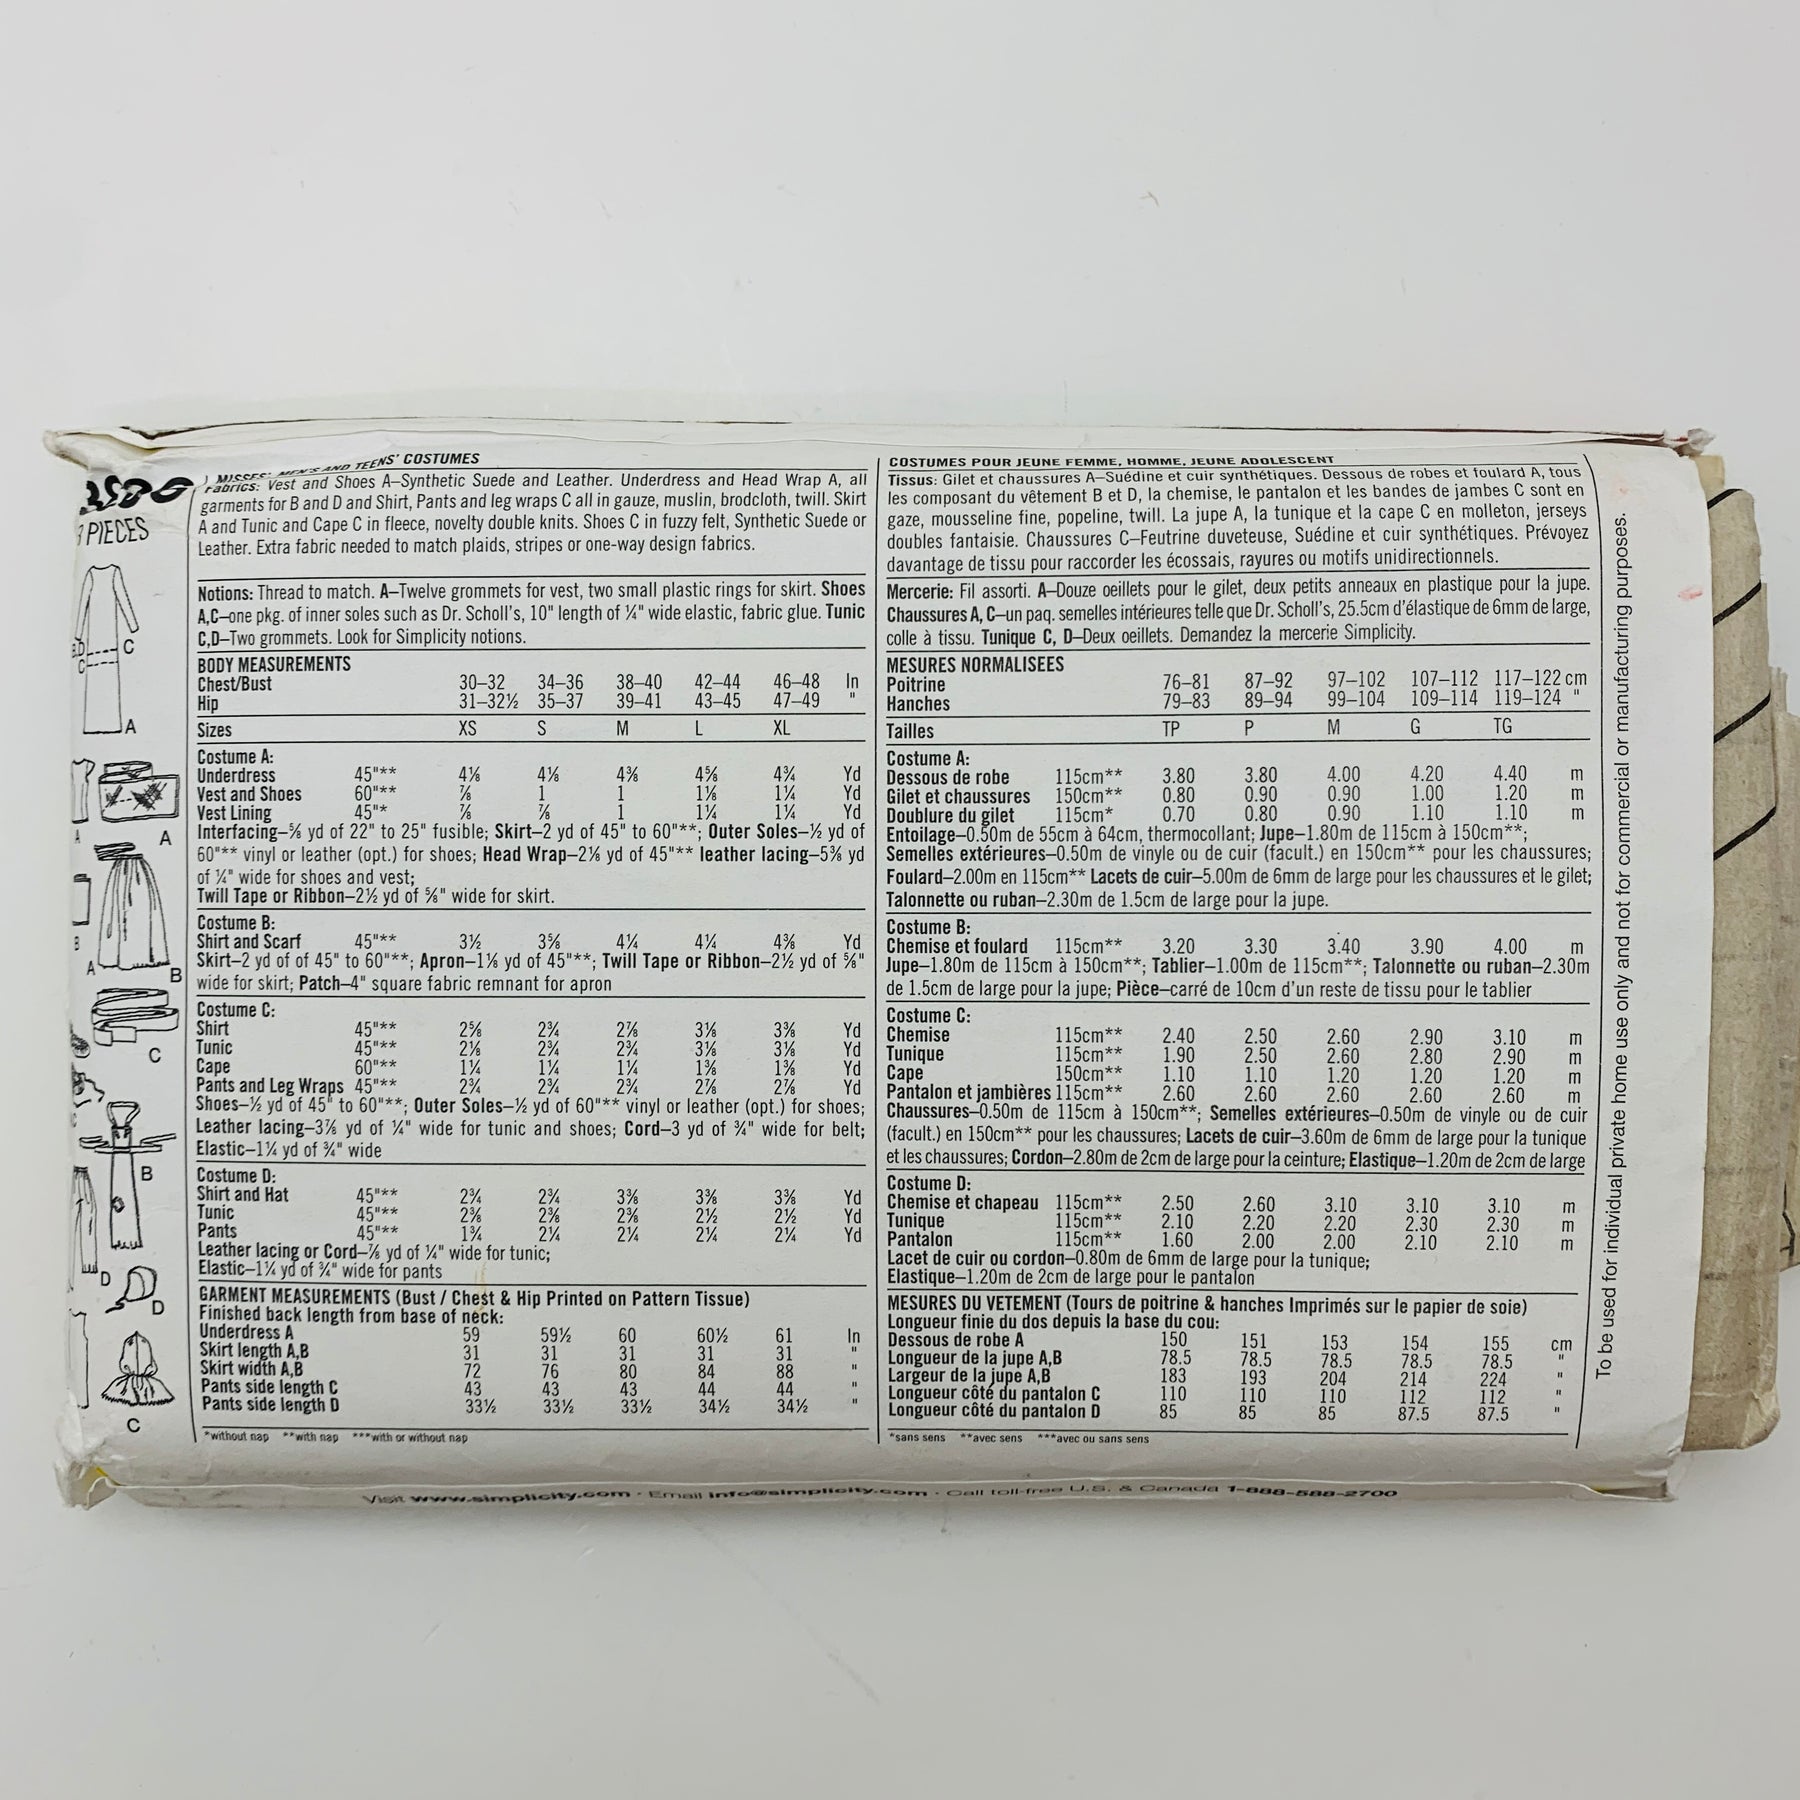 PIECES
C
A
A
A
B
A
B
C
B
D
D
C
MISSES' MEN'S AND TEENS' COSTUMES
Fabrics: Vest and Shoes A–Synthetic Suede and Leather. Underdress and Head Wrap A, all
garments for B and D and Shirt, Pants and leg wraps C all in gauze, muslin, brodcloth, twill. Skirt
A and Tunic and Cape C in fleece, novelty double knits. Shoes C in fuzzy felt, Synthetic Suede or
Leather. Extra fabric needed to match plaids, stripes or one-way design fabrics.
Notions: Thread to match. A–Twelve grommets for vest, two small plastic rings for skirt. Shoes
A,C–one pkg. of inner soles such as Dr. Scholl's, 10" length of ¼" wide elastic, fabric glue. Tunic
C,D–Two grommets. Look for Simplicity notions.
BODY MEASUREMENTS
Chest/Bust 30–32 34–36 38–40 42–44 46–48 In
Hip 31–32½ 35–37 39–41 43–45 47–49 "
Sizes XS S M L XL
Costume A:
Underdress 45"** 4⅛ 4⅛ 4⅜ 4⅝ 4¾ Yd
Vest and Shoes 60"** ⅞ 1 1 1⅛ 1¼ Yd
Vest Lining 45"* ⅞ ⅞ 1 1¼ 1¼ Yd
Interfacing–⅝ yd of 22" to 25" fusible; Skirt–2 yd of 45" to 60"**; Outer Soles–½ yd of
60"** vinyl or leather (opt.) for shoes; Head Wrap–2⅛ yd of 45"** leather lacing–5⅜ yd
of ¼" wide for shoes and vest;
Twill Tape or Ribbon–2½ yd of ⅝" wide for skirt.
Costume B:
Shirt and Scarf 45"** 3½ 3⅝ 4¼ 4¼ 4⅜ Yd
Skirt–2 yd of of 45" to 60"**; Apron–1⅛ yd of 45"**; Twill Tape or Ribbon–2½ yd of ⅝"
wide for skirt; Patch–4" square fabric remnant for apron
Costume C:
Shirt 45"** 2⅝ 2¾ 2⅞ 3⅛ 3⅜ Yd
Tunic 45"** 2⅛ 2¾ 2¾ 3⅛ 3⅛ Yd
Cape 60"** 1¼ 1¼ 1¼ 1⅜ 1⅜ Yd
Pants and Leg Wraps 45"** 2¾ 2¾ 2¾ 2⅞ 2⅞ Yd
Shoes–½ yd of 45" to 60"**; Outer Soles–½ yd of 60"** vinyl or leather (opt.) for shoes;
Leather lacing–3⅞ yd of ¼" wide for tunic and shoes; Cord–3 yd of ¾" wide for belt;
Elastic–1¼ yd of ¾" wide
Costume D:
Shirt and Hat 45"** 2¾ 2¾ 3⅜ 3⅜ 3⅜ Yd
Tunic 45"** 2⅜ 2⅜ 2⅜ 2½ 2½ Yd
Pants 45"** 1¾ 2¼ 2¼ 2¼ 2¼ Yd
Leather lacing or Cord–⅞ yd of ¼" wide for tunic;
Elastic–1¼ yd of ¾" wide for pants
GARMENT MEASUREMENTS (Bust / Chest & Hip Printed on Pattern Tissue)
Finished back length from base of neck:
Underdress A 59 59½ 60 60½ 61 In
Skirt length A,B 31 31 31 31 31 "
Skirt width A,B 72 76 80 84 88 "
Pants side length C 43 43 43 44 44 "
Pants side length D 33½ 33½ 33½ 34½ 34½ "
*without nap **with nap ***with or without nap
COSTUMES POUR JEUNE FEMME, HOMME, JEUNE ADOLESCENT
Tissus: Gilet et chaussures A–Suédine et cuir synthétiques. Dessous de robes et foulard A, tous
les composant du vêtement B et D, la chemise, le pantalon et les bandes de jambes C sont en
gaze, mousseline fine, popeline, twill. La jupe A, la tunique et la cape C en molleton, jerseys
doubles fantaisie. Chaussures C–Feutrine duveteuse, Suédine et cuir synthétiques. Prévoyez
davantage de tissu pour raccorder les écossais, rayures ou motifs unidirectionnels.
Mercerie: Fil assorti. A–Douze oeillets pour le gilet, deux petits anneaux en plastique pour la jupe.
Chaussures A, C–un paq. semelles intérieures telle que Dr. Scholl's, 25.5cm d'élastique de 6mm de large,
colle à tissu. Tunique C, D–Deux oeillets. Demandez la mercerie Simplicity.
MESURES NORMALISEES
Poitrine 76–81 87–92 97–102 107–112 117–122 cm
Hanches 79–83 89–94 99–104 109–114 119–124 "
Tailles TP P M G TG
Costume A:
Dessous de robe 115cm** 3.80 3.80 4.00 4.20 4.40 m
Gilet et chaussures 150cm** 0.80 0.90 0.90 1.00 1.20 m
Doublure du gilet 115cm* 0.70 0.80 0.90 1.10 1.10 m
Entoilage–0.50m de 55cm à 64cm, thermocollant; Jupe–1.80m de 115cm à 150cm**;
Semelles extérieures–0.50m de vinyle ou de cuir (facult.) en 150cm** pour les chaussures;
Foulard–2.00m en 115cm** Lacets de cuir–5.00m de 6mm de large pour les chaussures et le gilet;
Talonnette ou ruban–2.30m de 1.5cm de large pour la jupe.
Costume B:
Chemise et foulard 115cm** 3.20 3.30 3.40 3.90 4.00 m
Jupe–1.80m de 115cm à 150cm**; Tablier–1.00m de 115cm**; Talonnette ou ruban–2.30m
de 1.5cm de large pour la jupe; Pièce–carré de 10cm d'un reste de tissu pour le tablier
Costume C:
Chemise 115cm** 2.40 2.50 2.60 2.90 3.10 m
Tunique 115cm** 1.90 2.50 2.60 2.80 2.90 m
Cape 150cm** 1.10 1.10 1.20 1.20 1.20 m
Pantalon et jambières 115cm** 2.60 2.60 2.60 2.60 2.60 m
Chaussures–0.50m de 115cm à 150cm**; Semelles extérieures–0.50m de vinyle ou de cuir
(facult.) en 150cm** pour les chaussures; Lacets de cuir–3.60m de 6mm de large pour la tunique
et les chaussures; Cordon–2.80m de 2cm de large pour la ceinture; Elastique–1.20m de 2cm de large
Costume D:
Chemise et chapeau 115cm** 2.50 2.60 3.10 3.10 3.10 m
Tunique 115cm** 2.10 2.20 2.20 2.30 2.30 m
Pantalon 115cm** 1.60 2.00 2.00 2.10 2.10 m
Lacet de cuir ou cordon–0.80m de 6mm de large pour la tunique;
Elastique–1.20m de 2cm de large pour le pantalon
MESURES DU VETEMENT (Tours de poitrine & hanches Imprimés sur le papier de soie)
Longueur finie du dos depuis la base du cou:
Dessous de robe A 150 151 153 154 155 cm
Longueur de la jupe A,B 78.5 78.5 78.5 78.5 78.5 "
Largeur de la jupe A,B 183 193 204 214 224 "
Longueur côté du pantalon C 110 110 110 112 112 "
Longueur côté du pantalon D 85 85 85 87.5 87.5 "
*sans sens **avec sens ***avec ou sans sens
To be used for individual private home use only and not for commercial or manufacturing purposes.
Visit www.simplicity.com · Email info@simplicity.com · Call toll-free U.S. & Canada 1-888-588-2700